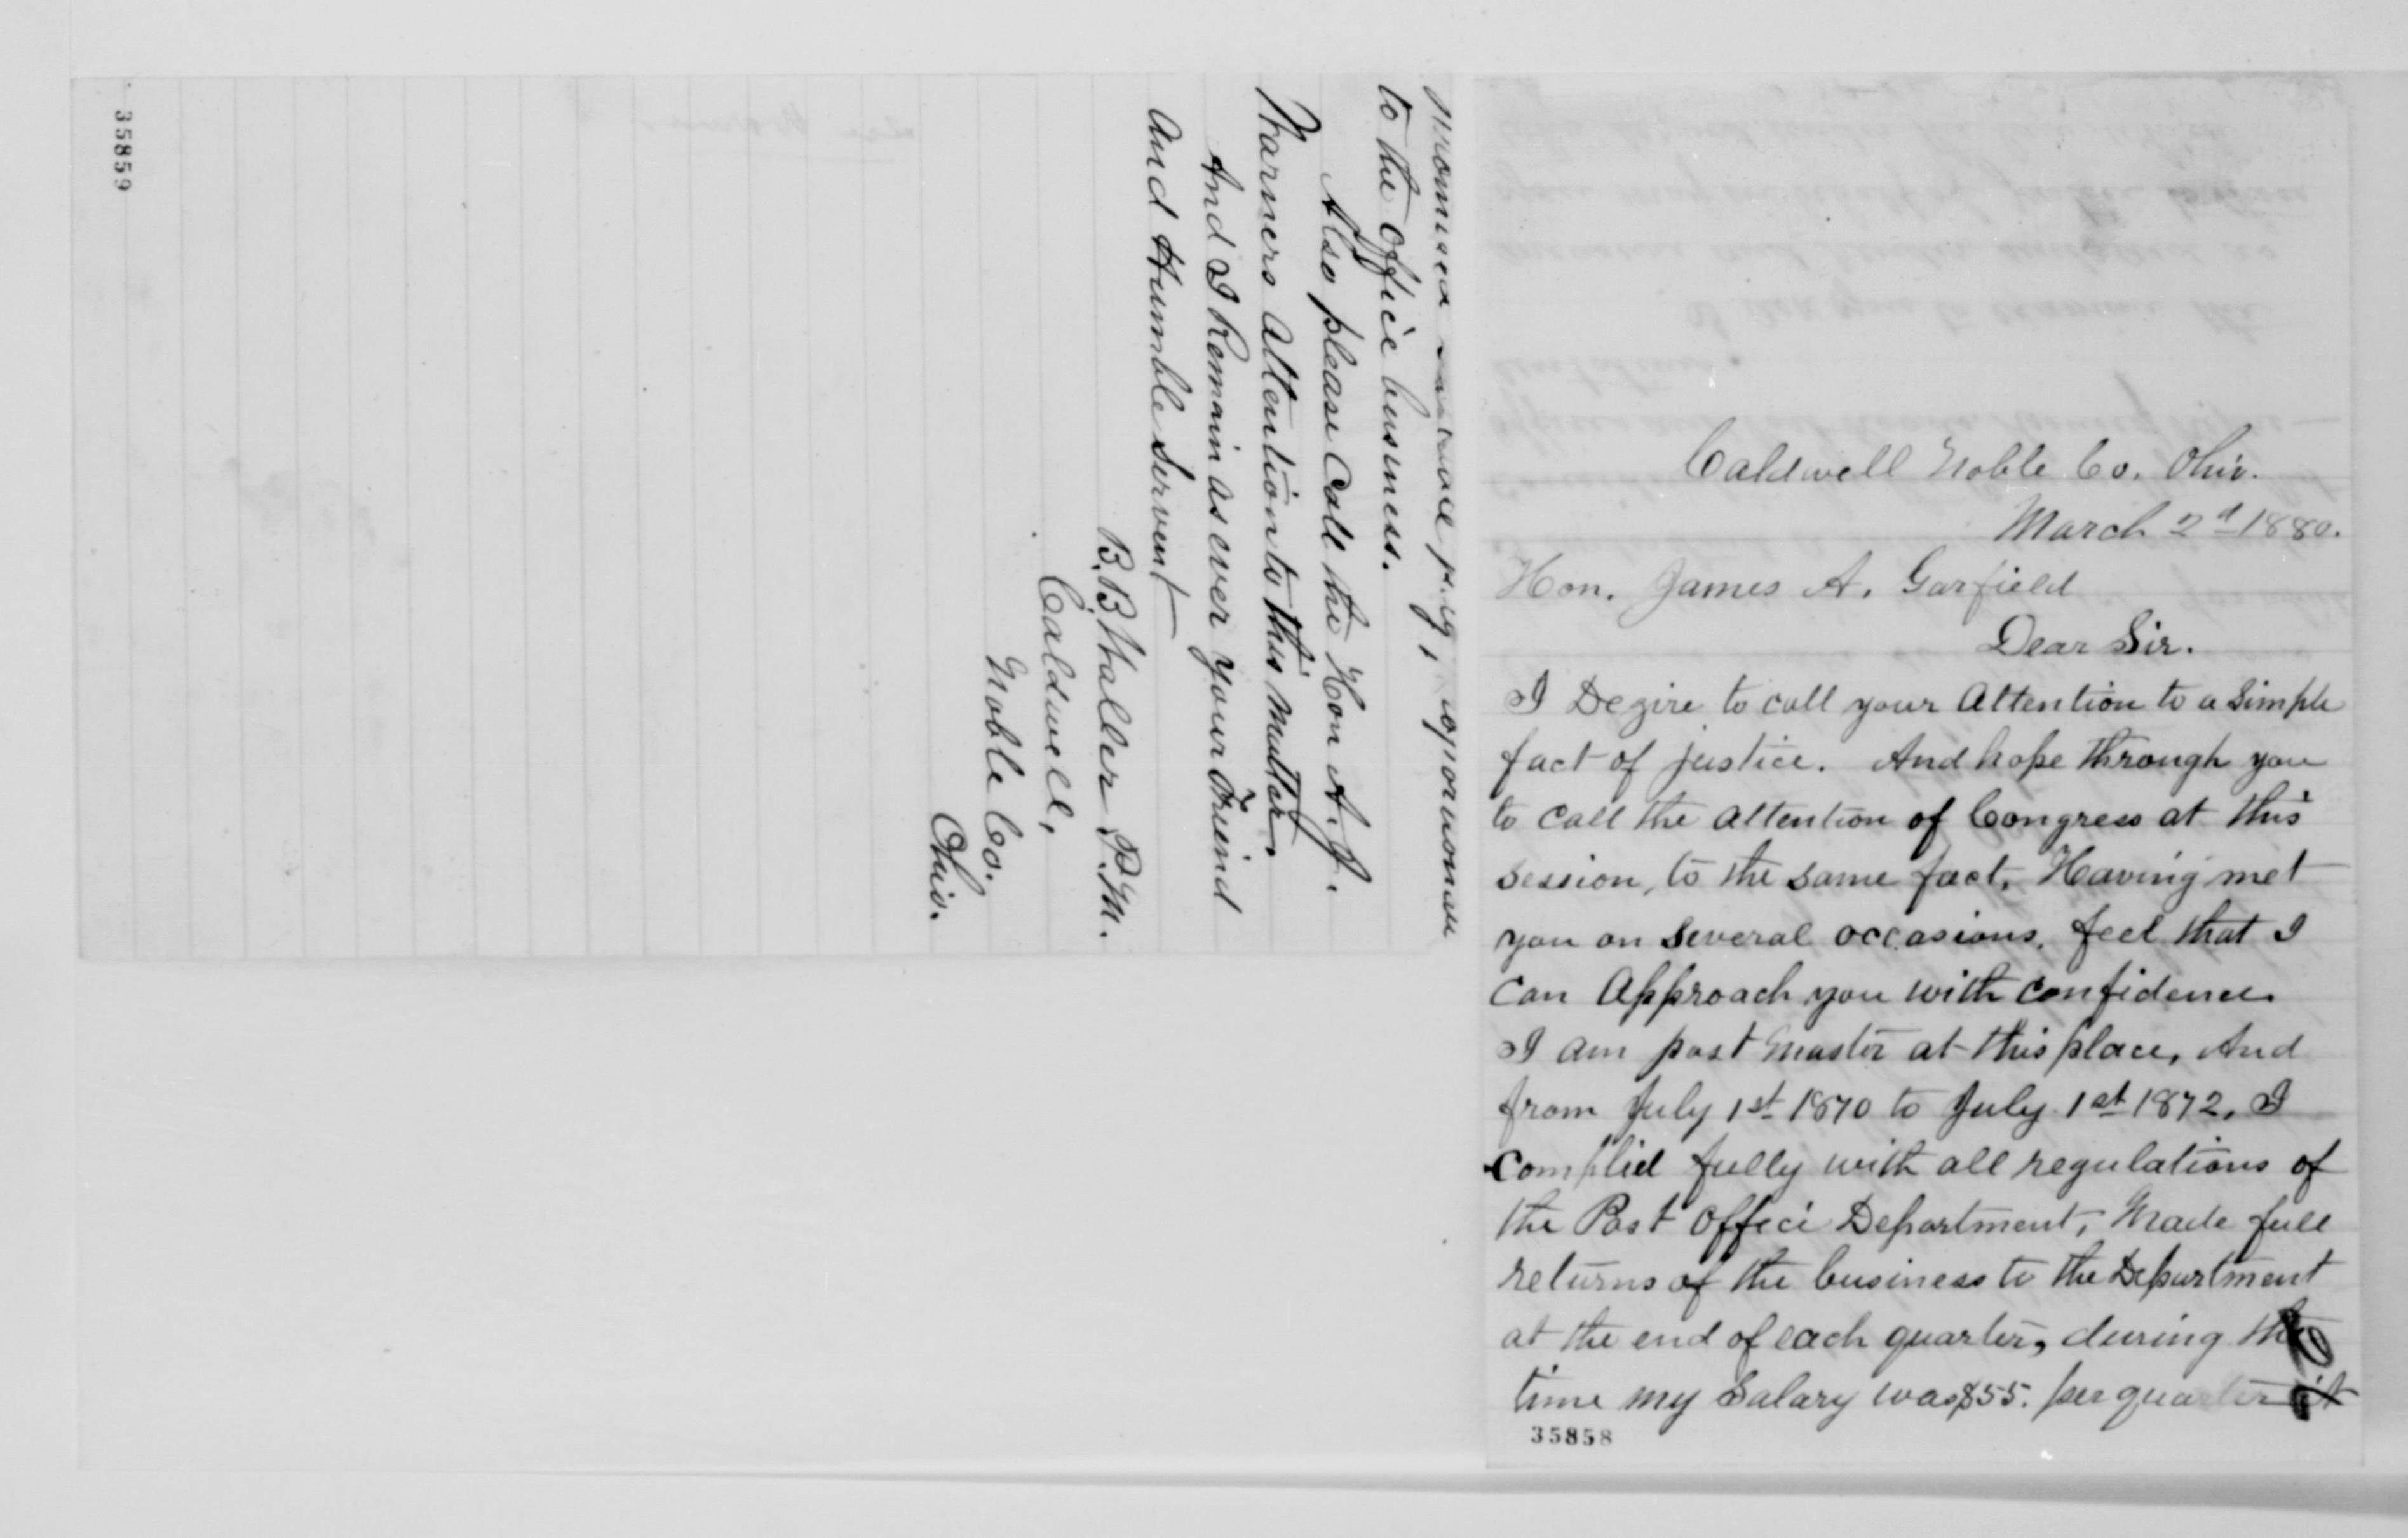 Caldwell Noble Co. Ohio.
March 2d 1880.
Hon. James A. Garfield
Dear Sir.
I Dezire to call your Attention to a Simple
fact of justice. And hope through you
to Call the Attention of Congress at this
session, to the same fact, Having met
you on several occasions, feel that I
Can Approach you with confidence.
I am post master at this place, And
from July 1st 1870 to July 1st 1872, I
complied fully with all regulations of
the Post Office Department, Made full
returns of the business to the Department
at the end of each quarter, during the
time my Salary was $55. per quarter it
35858
to the Office business.
Also please Call the Hon A. J.
Warners Attention to this matter.
And I Remain as ever your Friend
And Humble Servent
B. B. Waller P.M.
Caldwell,
Noble Co.
Ohio.
35859